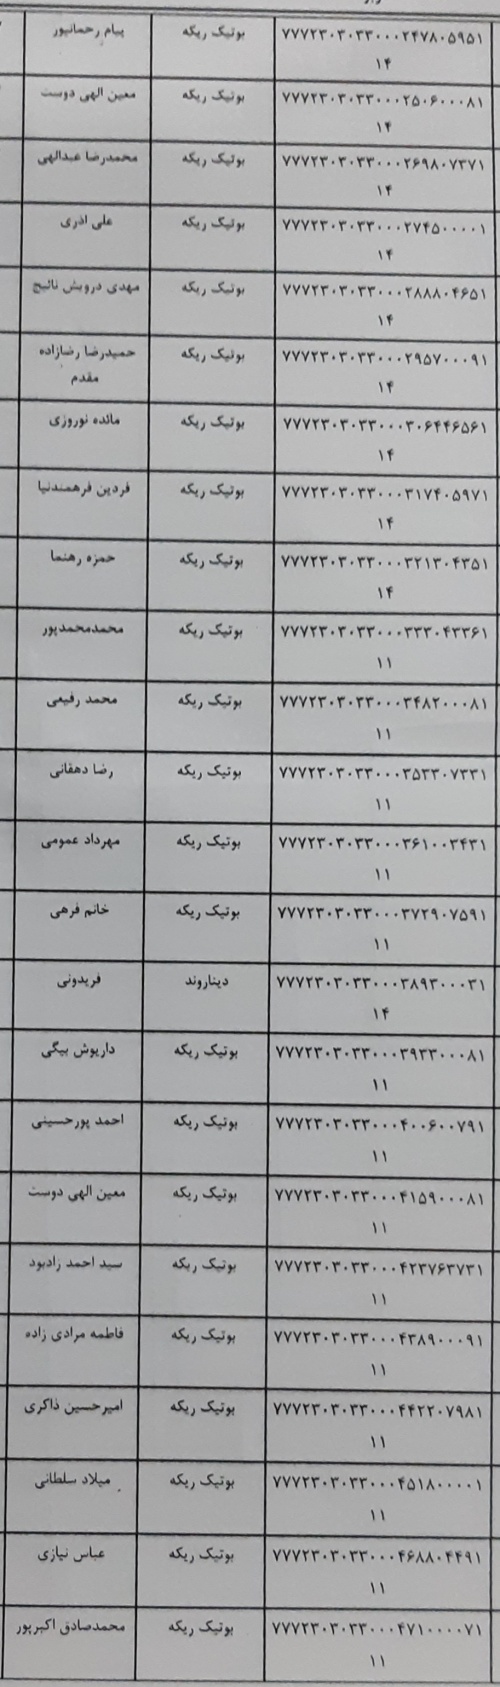 ۷۷۷۲۳۰۳۰۳۳۰۰۰۲۴۷۸۰۵۹۵۱ بوتیک ریکه پیام رحمانپور
۱۴
۷۷۷۲۳۰۳۰۳۳۰۰۰۲۵۰۶۰۰۰۸۱ بوتیک ریکه معین الهی دوست
۱۴
۷۷۷۲۳۰۳۰۳۳۰۰۰۲۶۹۸۰۷۳۷۱ بوتیک ریکه محمدرضا عبدالهی
۱۴
۷۷۷۲۳۰۳۰۳۳۰۰۰۲۷۴۵۰۰۰۰۱ بوتیک ریکه علی اذری
۱۴
۷۷۷۲۳۰۳۰۳۳۰۰۰۲۸۸۸۰۴۶۵۱ بوتیک ریکه مهدی درویش نائیج
۱۴
۷۷۷۲۳۰۳۰۳۳۰۰۰۲۹۵۷۰۰۰۹۱ بوتیک ریکه حمیدرضا رضازاده
۱۴ مقدم
۷۷۷۲۳۰۳۰۳۳۰۰۰۳۰۶۴۴۶۵۶۱ بوتیک ریکه مائده نوروزی
۱۴
۷۷۷۲۳۰۳۰۳۳۰۰۰۳۱۷۴۰۵۹۷۱ بوتیک ریکه فردین فرهمندنیا
۱۴
۷۷۷۲۳۰۳۰۳۳۰۰۰۳۲۱۳۰۴۳۵۱ بوتیک ریکه حمزه رهنما
۱۴
۷۷۷۲۳۰۳۰۳۳۰۰۰۳۳۳۰۴۳۳۶۱ بوتیک ریکه محمدمحمدپور
۱۱
۷۷۷۲۳۰۳۰۳۳۰۰۰۳۴۸۲۰۰۰۸۱ بوتیک ریکه محمد رفیعی
۱۱
۷۷۷۲۳۰۳۰۳۳۰۰۰۳۵۳۳۰۷۳۳۱ بوتیک ریکه رضا دهقانی
۱۱
۷۷۷۲۳۰۳۰۳۳۰۰۰۳۶۱۰۰۳۴۳۱ بوتیک ریکه مهرداد عمومی
۱۱
۷۷۷۲۳۰۳۰۳۳۰۰۰۳۷۲۹۰۷۵۹۱ بوتیک ریکه خانم فرهی
۱۱
۷۷۷۲۳۰۳۰۳۳۰۰۰۳۸۹۳۰۰۰۳۱ دیناروند فریدونی
۱۴
۷۷۷۲۳۰۳۰۳۳۰۰۰۳۹۳۳۰۰۰۸۱ بوتیک ریکه داریوش بیگی
۱۱
۷۷۷۲۳۰۳۰۳۳۰۰۰۴۰۰۶۰۰۷۹۱ بوتیک ریکه احمد پورحسینی
۱۱
۷۷۷۲۳۰۳۰۳۳۰۰۰۴۱۵۹۰۰۰۸۱ بوتیک ریکه معین الهی دوست
۱۱
۷۷۷۲۳۰۳۰۳۳۰۰۰۴۲۳۷۶۳۷۳۱ بوتیک ریکه سید احمد رادبود
۱۱
۷۷۷۲۳۰۳۰۳۳۰۰۰۴۳۸۹۰۰۰۹۱ بوتیک ریکه فاطمه مرادی زاده
۱۱
۷۷۷۲۳۰۳۰۳۳۰۰۰۴۴۲۲۰۷۹۸۱ بوتیک ریکه امیرحسین ذاکری
۱۱
۷۷۷۲۳۰۳۰۳۳۰۰۰۴۵۱۸۰۰۰۰۱ بوتیک ریکه میلاد سلطانی
۱۱
۷۷۷۲۳۰۳۰۳۳۰۰۰۴۶۸۸۰۴۴۹۱ بوتیک ریکه عباس نیازی
۱۱
۷۷۷۲۳۰۳۰۳۳۰۰۰۴۷۱۰۰۰۰۷۱ بوتیک ریکه محمدصادق اکبرپور
۱۱